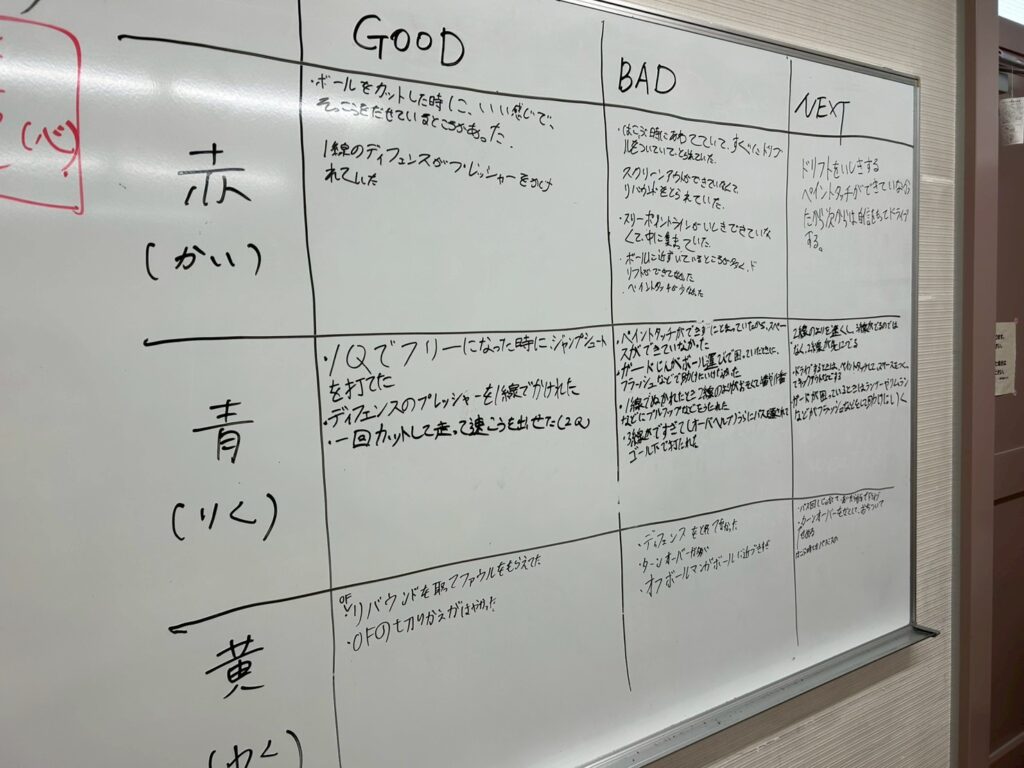 (心)
GOOD
BAD
NEXT
赤
(かい)
・ボールをカットした時に、いい感じで、
そっこうをだせているところがあった.
1線のディフェンスがプレッシャーをかけ
れていた
・はこぶ時にあわてていて、すぐにドリブ
ルをついていて、とられていた.
スクリーンアウトができていなくて
リバウンドをとられていた.
・スリーポイントラインがいしきできていな
くて、中に集まっていた.
・ボールに近ずいているところが多く、ド
リフトができてなかった
・ペイントタッチが少なかった
ドリフトをいしきする
ペイントタッチができていない
だから次からは自信をもってドライブ
する。
青
(りく)
・1Qでフリーになった時にジャンプシュート
を打てた
・ディフェンスのプレッシャーを1線でかけれた
・一回カットして走って速こうを出せた(2Q)
・ペイントタッチができずにとまっていたから、スペー
スができていなかった
・ガードじんがボール運びで困っていたときに、
フラッシュなどで助けたいけなかった
・1線でぬかれたとき2線のよりがおそくて
などにプルアップなどをうたれた
・3線がですぎて(オーバーヘルプ)うらにパスを通されて
ゴール下で打たれた
2線のよりを速くし、3線がでるのでは
なく、2線が先にでる
・ドライブするときは、ペイントタッチして、スペースをつくっ
てキックアウトなどする
・ガードが困っているときはランナーやリムラン
などがフラッシュなどをして助けにいく
黄
(わく)
OF
・リバウンドを取ってファウルをもらえてた
・OFの切りかえがはやかった
・ディフェンスをとれてなかった
・ターンオーバーが多い
・オフボールマンがボールに近づきすぎ
・ターンオーバーをなくして、おちついて
せめる